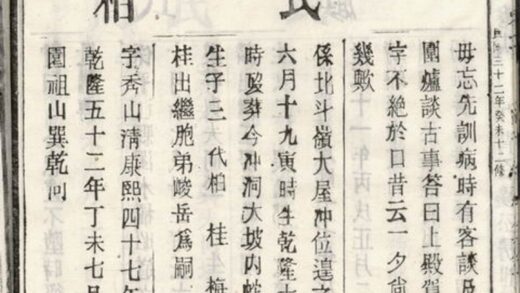 三十二年癸未十二修
氏
毋忘先訓病時有客談及
圍爐談古事答曰上殿賀
字不絕於口昔云一夕尙
幾歟
係北斗嶺大屋冲位遑之
六月十九寅時生乾隆
時歿葬今冲洞大坡内蛇
生子三代柏 桂 梅
桂出繼胞弟峻岳爲嗣
柏
字秀山清康熙四十七年
乾隆五十二年丁未七月
圍祖山巽乾向